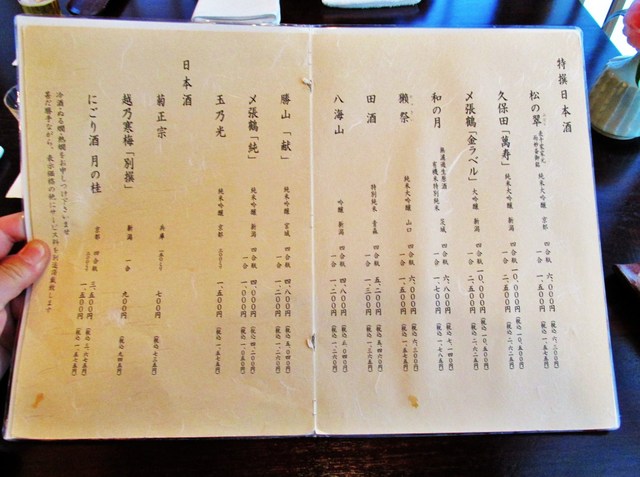 特撰日本酒
松の翠 純米大吟醸 京都 四合瓶 六、〇〇〇円 (税込 六、三〇〇円)
一合 一、五〇〇円 (税込 一、五七五円)
久保田「萬寿」 純米大吟醸 新潟 四合瓶 一〇、〇〇〇円 (税込 一〇、五〇〇円)
一合 二、五〇〇円 (税込 二、六二五円)
〆張鶴「金ラベル」 大吟醸 新潟 四合瓶 一〇、〇〇〇円 (税込 一〇、五〇〇円)
一合 二、五〇〇円 (税込 二、六二五円)
和の月 無濾過生原酒 有機米特別純米 茨城 四合瓶 六、八〇〇円 (税込 七、一四〇円)
一合 一、七〇〇円 (税込 一、七八五円)
獺祭 純米大吟醸 山口 四合瓶 六、〇〇〇円 (税込 六、三〇〇円)
一合 一、五〇〇円 (税込 一、五七五円)
田酒 特別純米 青森 四合瓶 五、二〇〇円 (税込 五、四六〇円)
一合 一、三〇〇円 (税込 一、三六五円)
八海山 吟醸 新潟 四合瓶 四、八〇〇円 (税込 五、〇四〇円)
一合 一、二〇〇円 (税込 一、二六〇円)
勝山「献」 純米吟醸 宮城 四合瓶 四、八〇〇円 (税込 五、〇四〇円)
一合 一、二〇〇円 (税込 一、二六〇円)
〆張鶴「純」 純米吟醸 新潟 四合瓶 四、〇〇〇円 (税込 四、二〇〇円)
一合 一、〇〇〇円 (税込 一、〇五〇円)
玉乃光 純米吟醸 京都 一、五〇〇円 (税込 一、五七五円)
日本酒
菊正宗 兵庫 七〇〇円 (税込 七三五円)
越乃寒梅「別撰」 新潟 一合 九〇〇円 (税込 九四五円)
にごり酒 月の桂 京都 四合瓶 三、五〇〇円 (税込 三、六七五円)
一、五〇〇円 (税込 一、五七五円)
冷酒・ぬる燗・熱燗をお申しつけ下さいませ
甚だ勝手ながら、表示価格の他にサービス料を別途頂戴致します